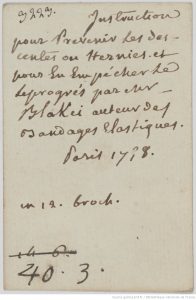 9223.
Instruction
pour Prevenir Les des-
centes ou Hernies. et
pour En Empécher Le
Le progrès par Mr
Blakei auteur des
Bandages Elastiques.
Paris 1778.
in 12. broch.
40. 3.